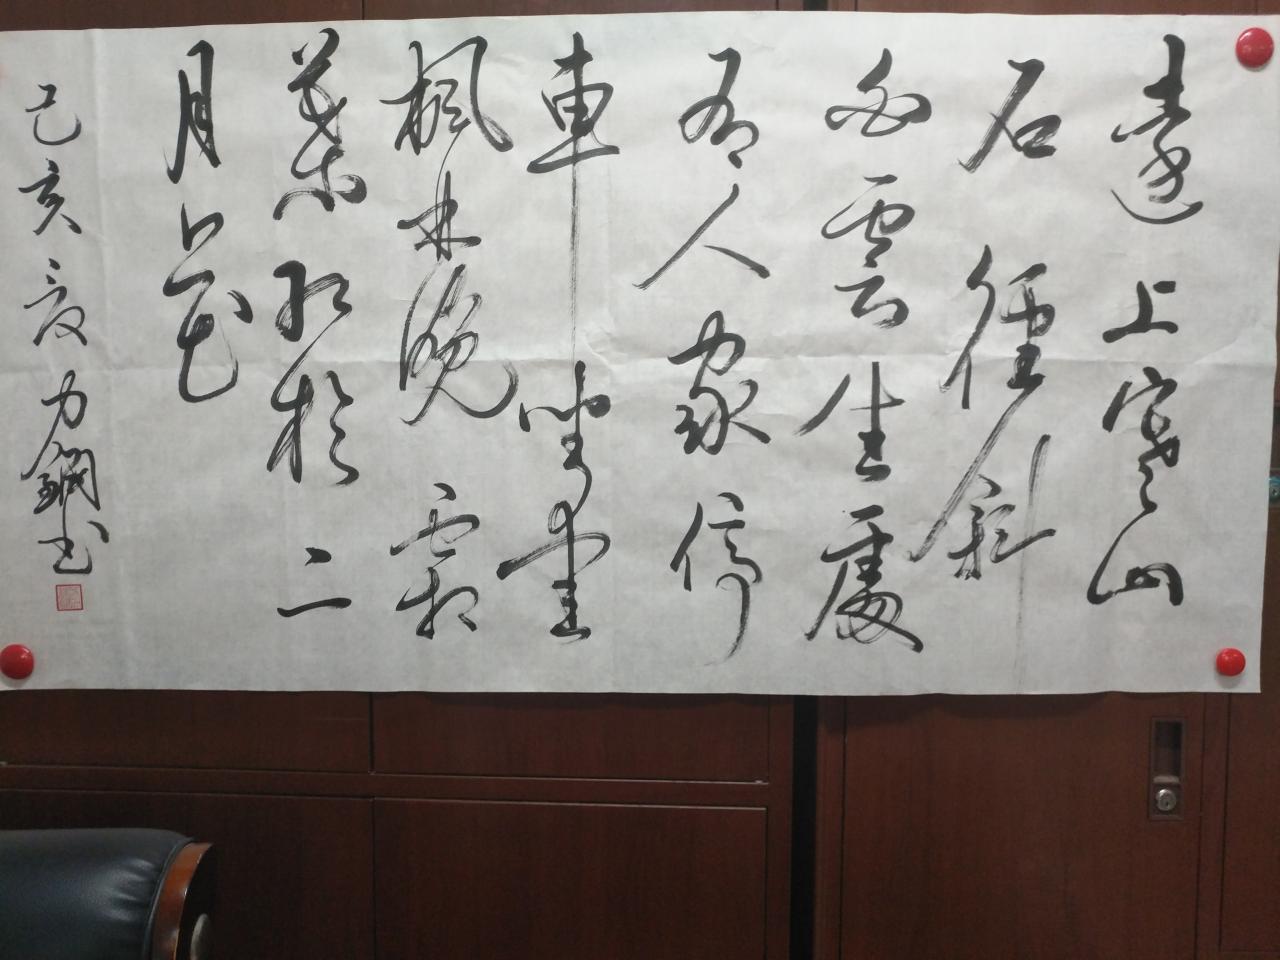 遠上寒山
石徑斜
白雲生處
有人家停
車坐愛
楓林晚霜
葉紅於二
月花
己亥夏力鋼書